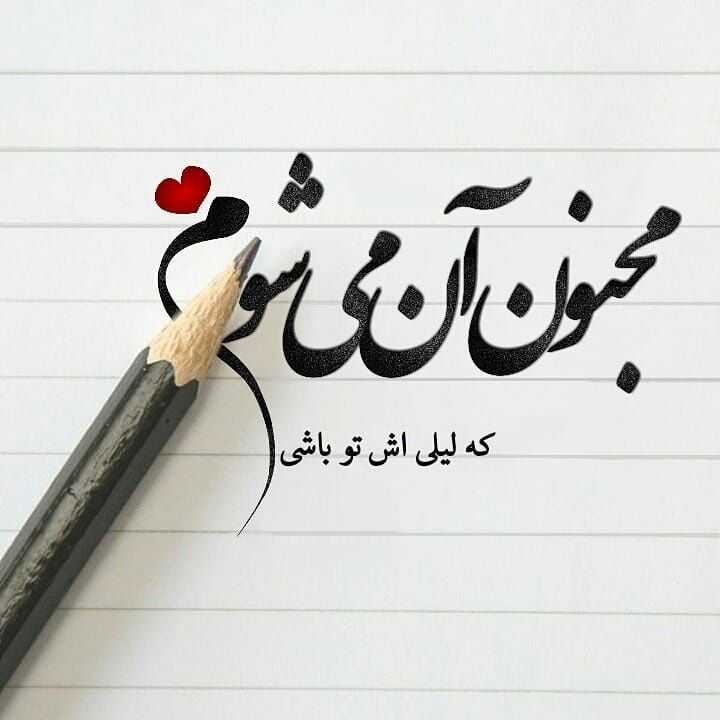 مجنون آن می شوم
که لیلی اش تو باشی